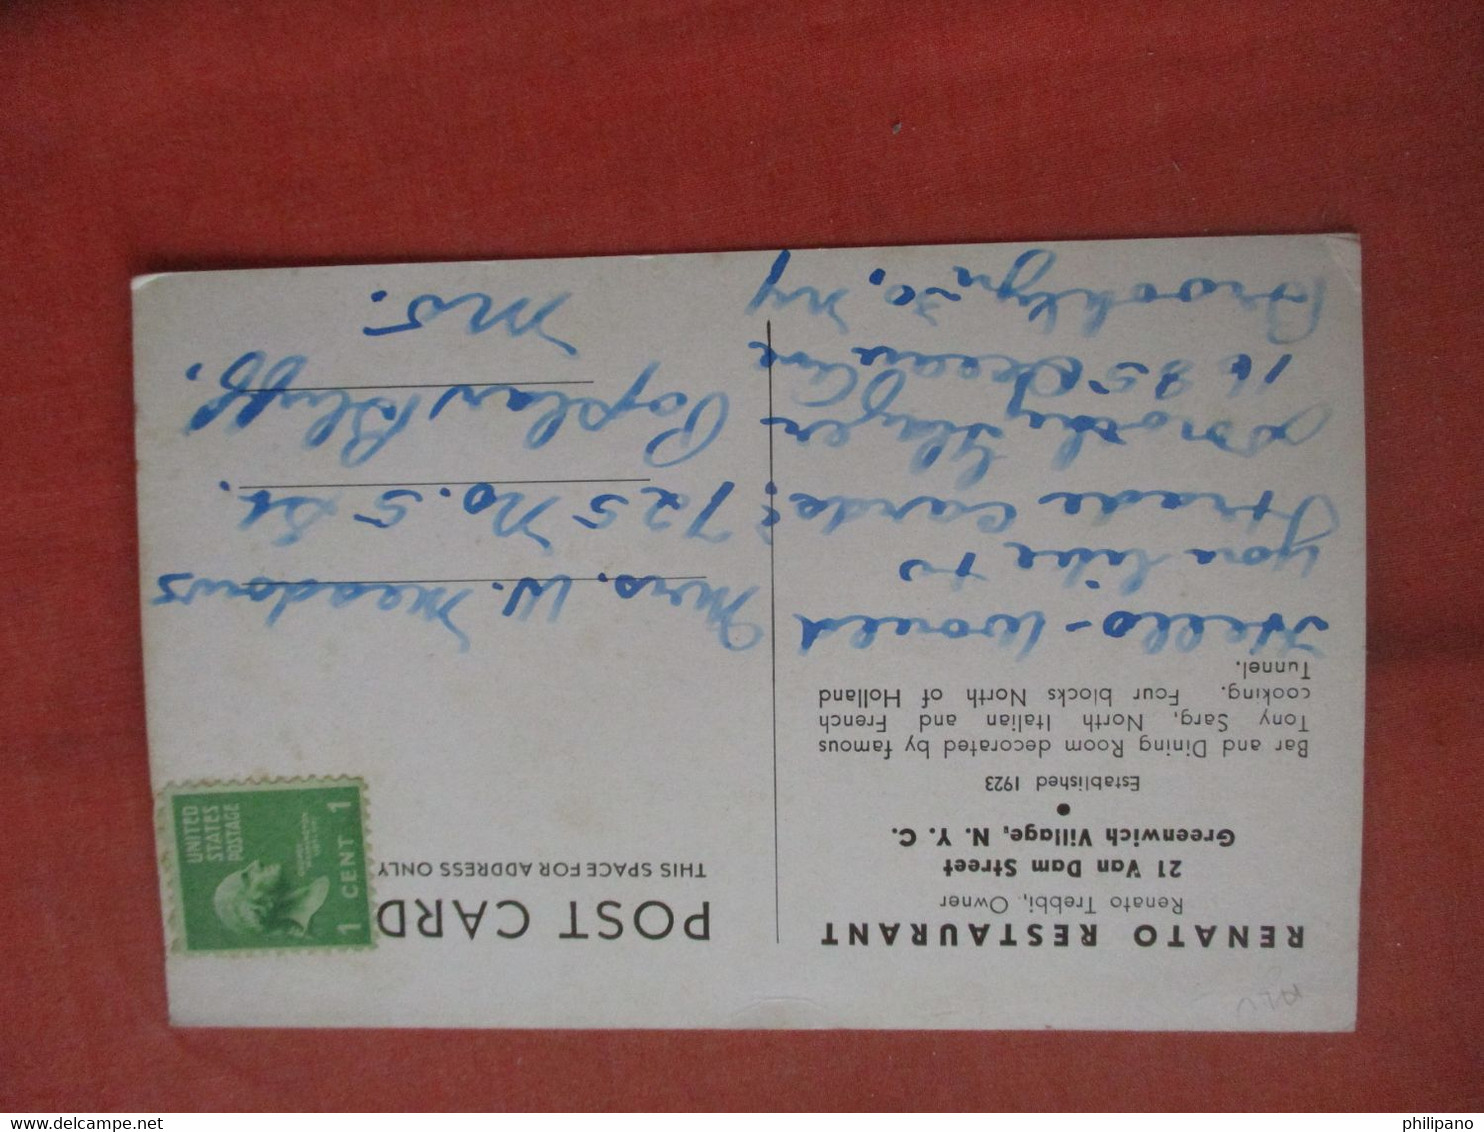 RENATO RESTAURANT
Renato Trebbi, Owner
21 Van Dam Street
Greenwich Village, N. Y. C.
•
Established 1923
Bar and Dining Room decorated by famous
Tony Sarg, North Italian and French
cooking. Four blocks North of Holland
Tunnel.
Hello - Would
you like to
trade cards?
Dorothy Slayer
1635 Ave
Brooklyn 30, NY
POST CARD
THIS SPACE FOR ADDRESS ONLY
UNITED
STATES
POSTAGE
1 CENT 1
Mrs. W. Meadows
725 No. 5 St.
Poplar Bluff,
Mo.
philipano